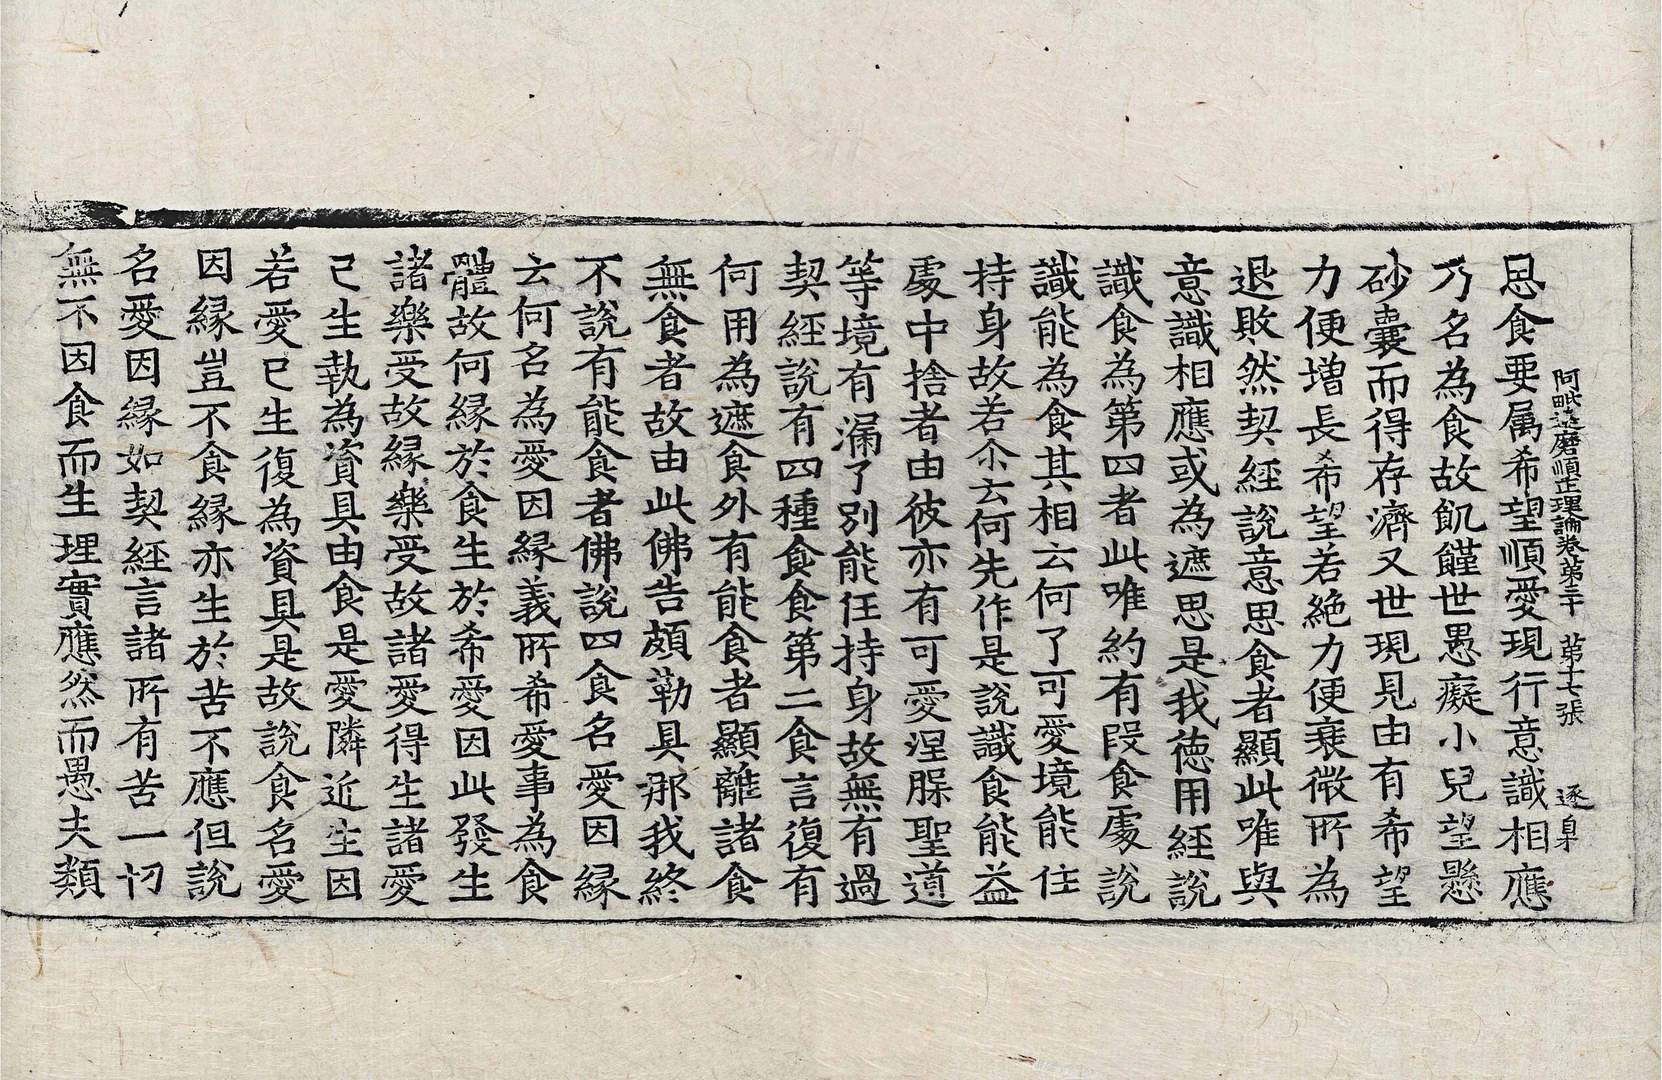 阿毗達磨順正理論卷第三十 第十七張 逐 㒶
思食要属希望順愛現行意識相應
乃名為食故飢饉世愚癡小兒望懸
砂囊而得存濟又世現見由有希望
力便增長希望若絶力便衰微所為
退敗然契經說意思食者顯此唯與
意識相應或為遮思是我徳用經說
識食為第四者此唯約有段食處說
識能為食其相云何了可愛境能住
持身故若尒云何先作是說識食能益
處中捨者由彼亦有可愛涅槃聖道
等境有漏了別能任持身故無有過
契經說有四種食食第二食言復有
何用為遮食外有能食者顯離諸食
無食者故由此佛告頗勒具那我終
不說有能食者佛說四食名愛因緣
云何名為愛因緣義所希愛事為食
體故何緣於食生於希愛因此發生
諸樂受故緣樂受故諸愛得生諸愛
已生執為資具由食是愛隣近生因
若愛已生復為資具是故說食名愛
因緣豈不食緣亦生於苦不應但說
名愛因緣如契經言諸所有苦一切
無不因食而生理實應然而愚夫類